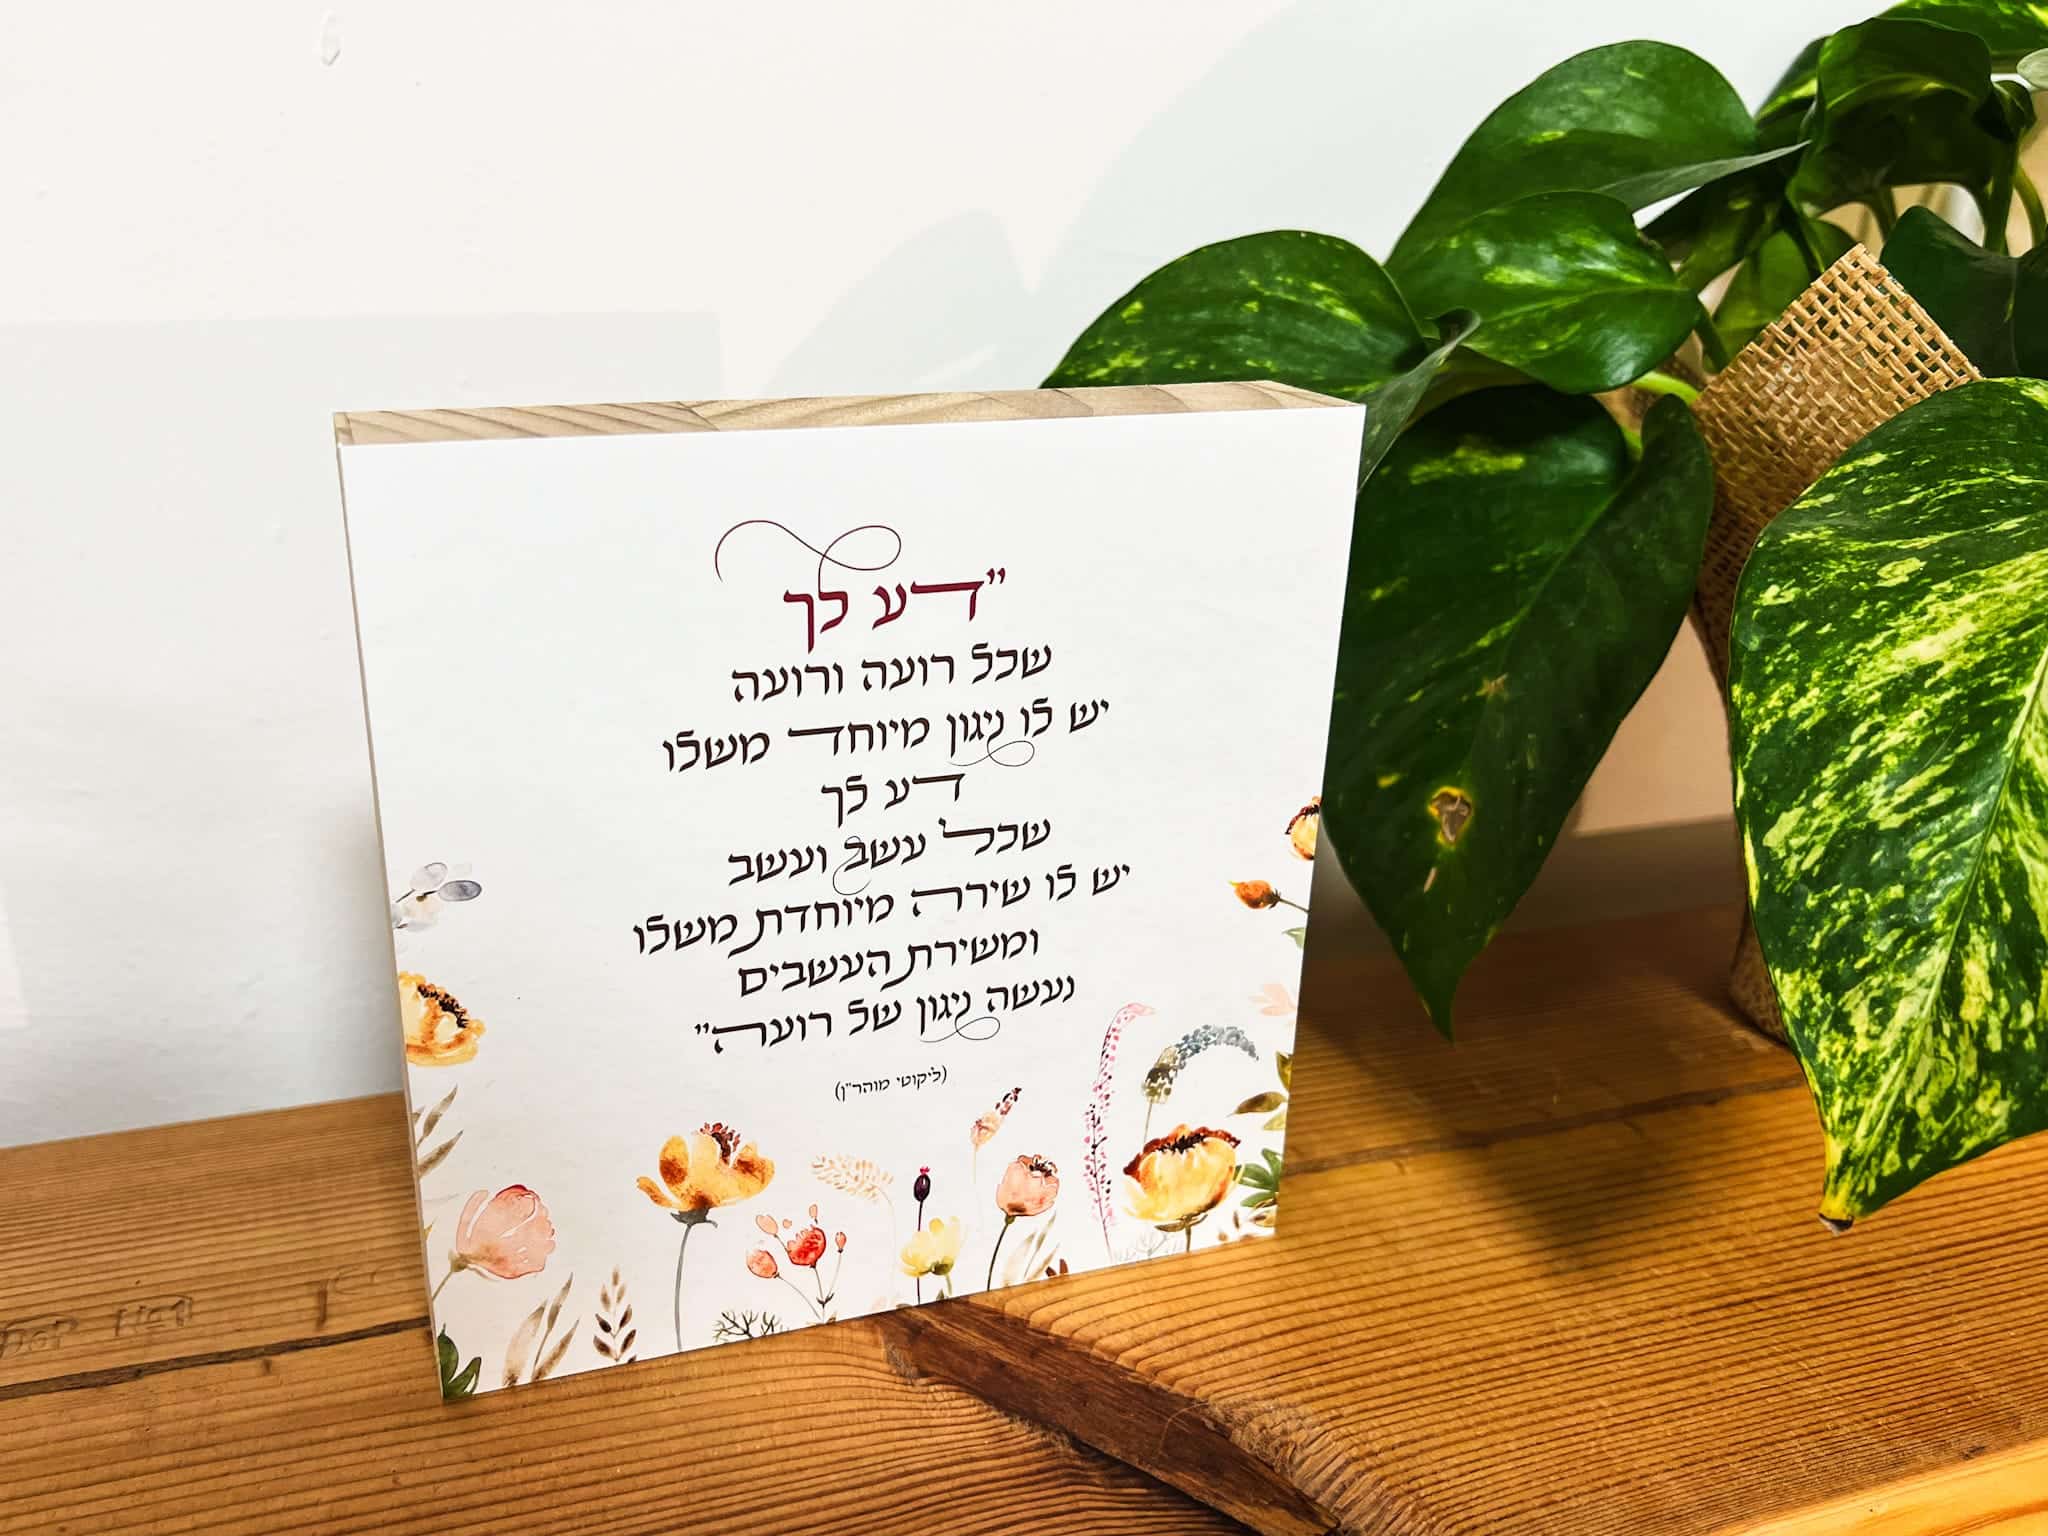 "דע לך
שכל רועה ורועה
יש לו ניגון מיוחד משלו
דע לך
שכל עשב ועשב
יש לו שירה מיוחדת משלו
ומשירת העשבים
נעשה ניגון של רועה"
(ליקוטי מוהר"ן)